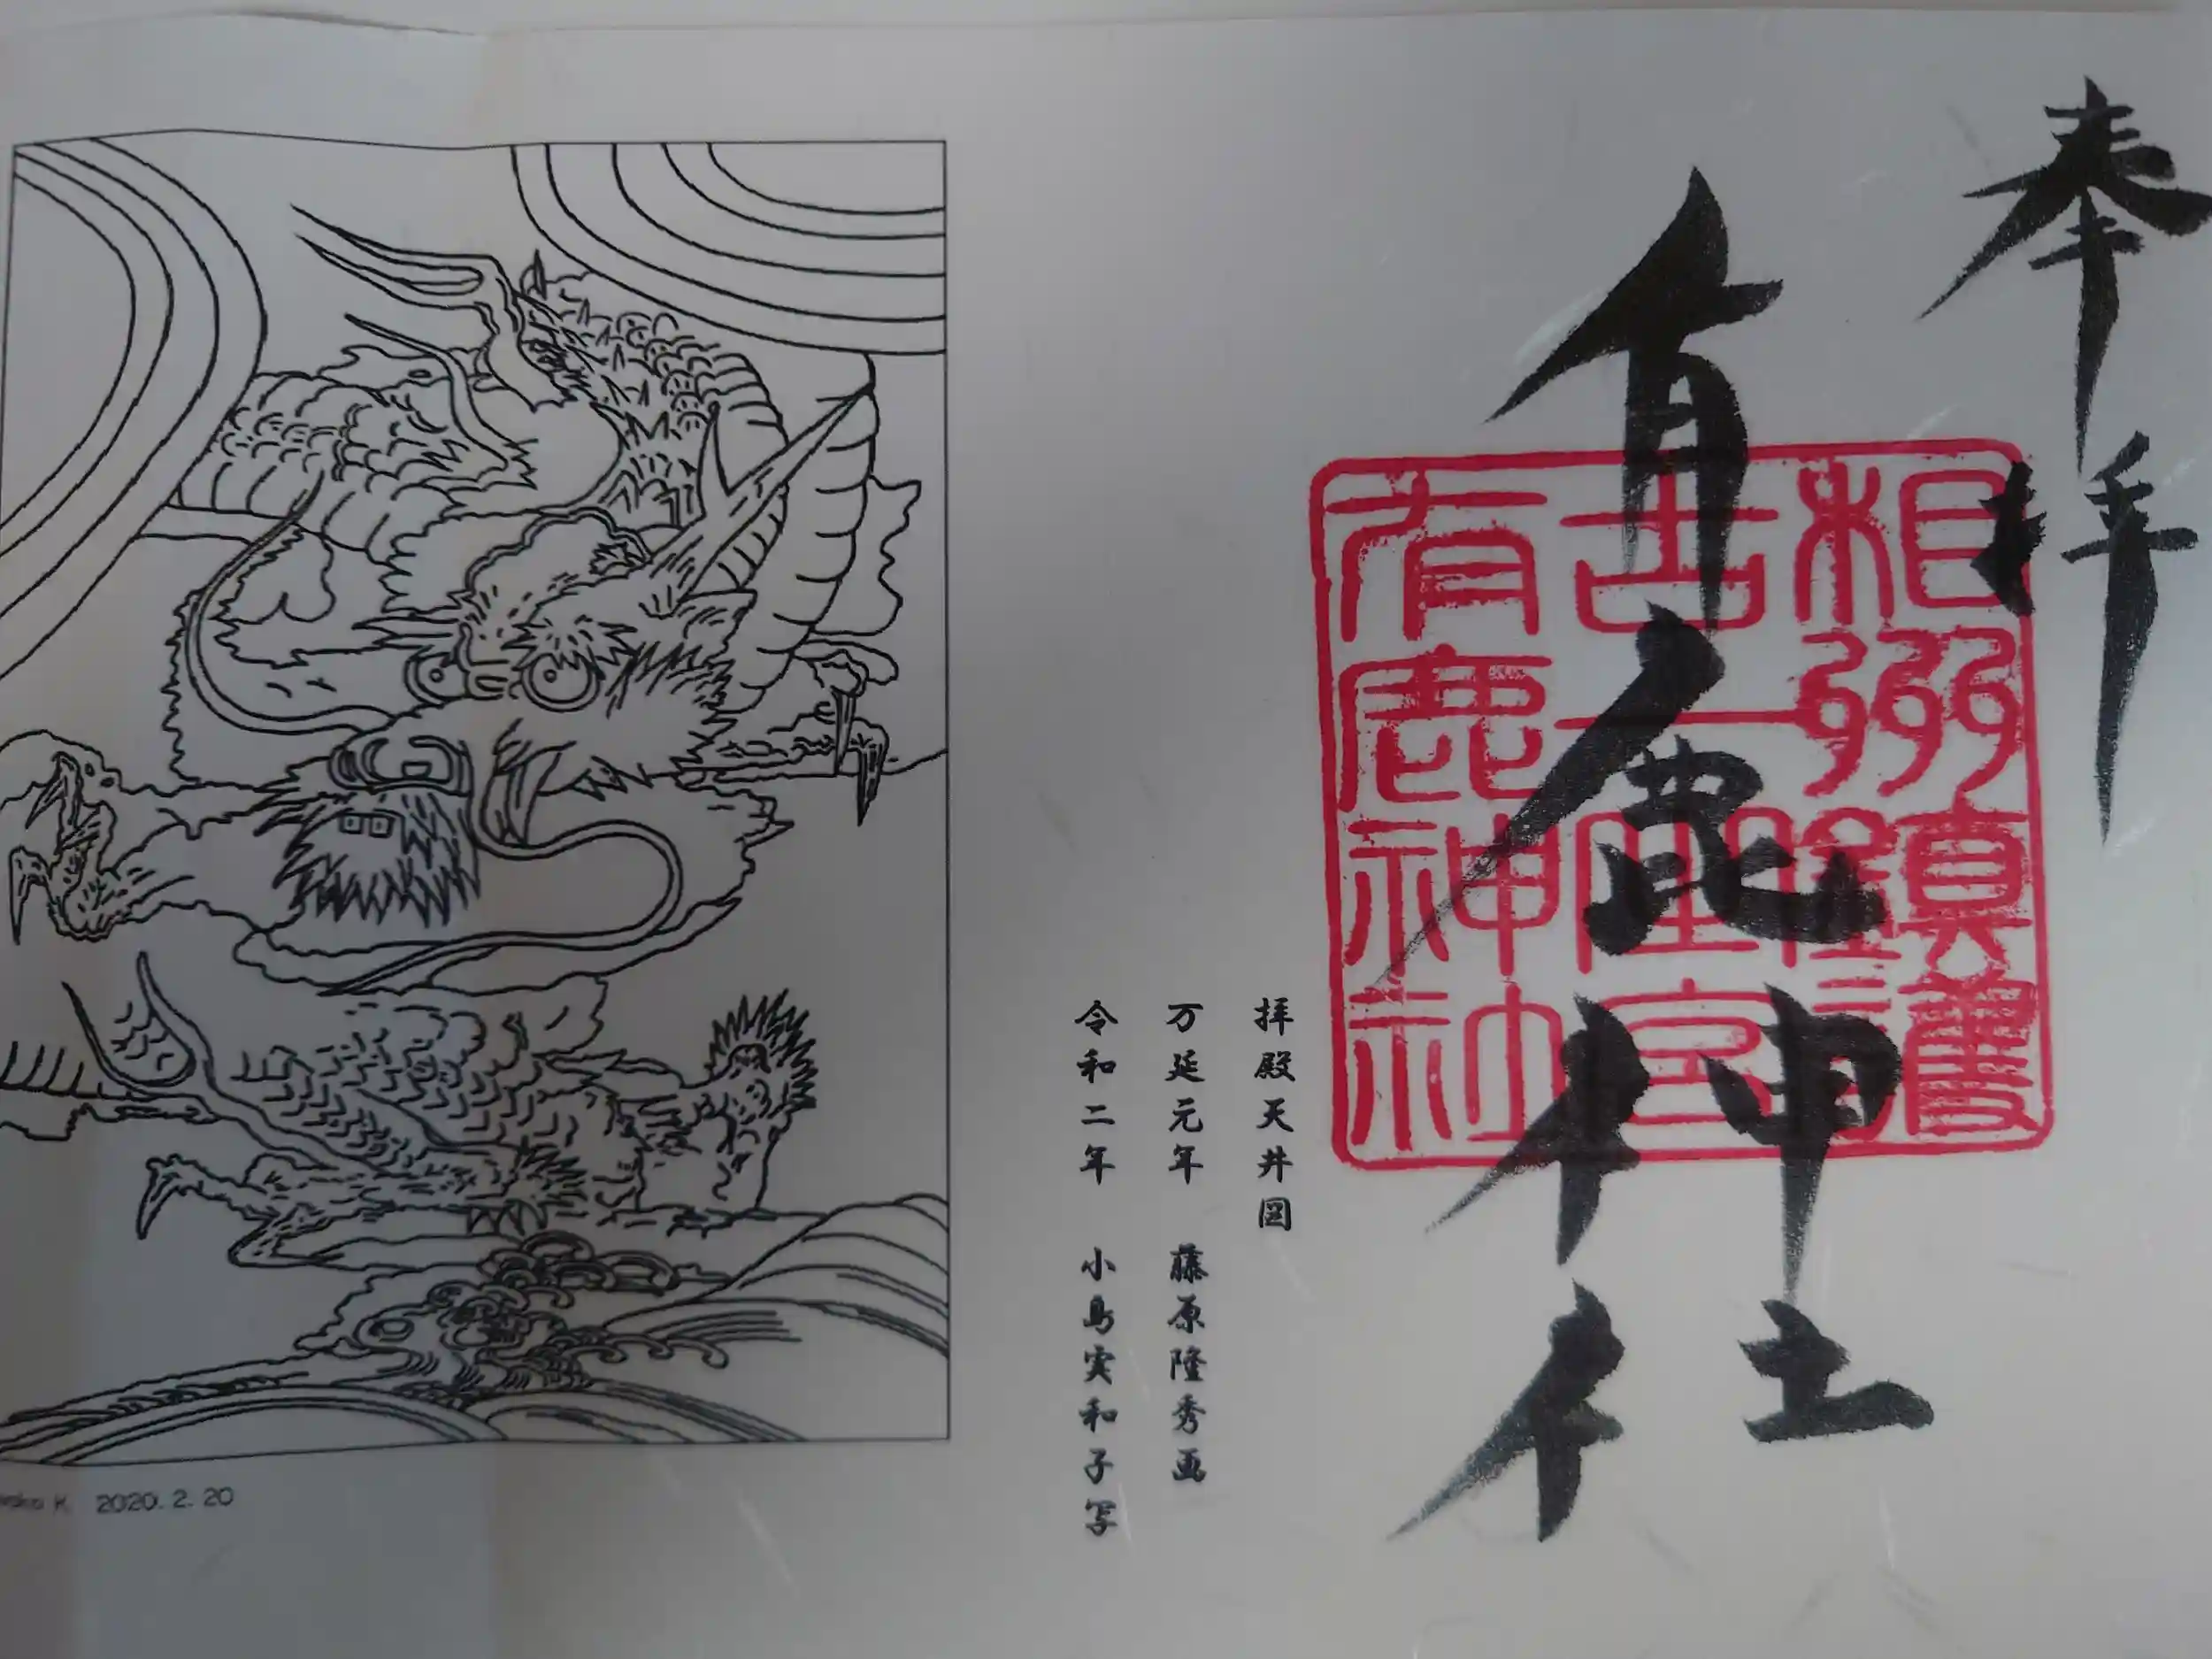 奉拝
有鹿神社
相州鎮護
五ノ宮
有鹿神社
拝殿天井図
万延元年 藤原隆秀画
令和二年 小島実和子写
K. 2020. 2. 20